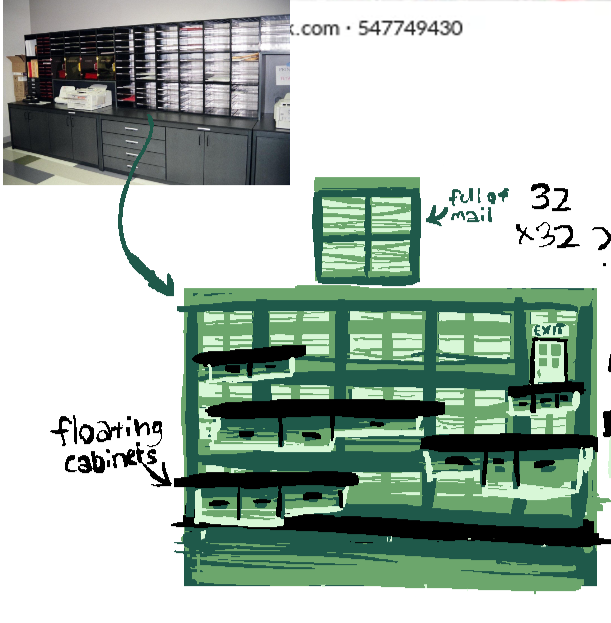 k.com · 547749430
full of
mail
32
x32
EXIT
floating
cabinets